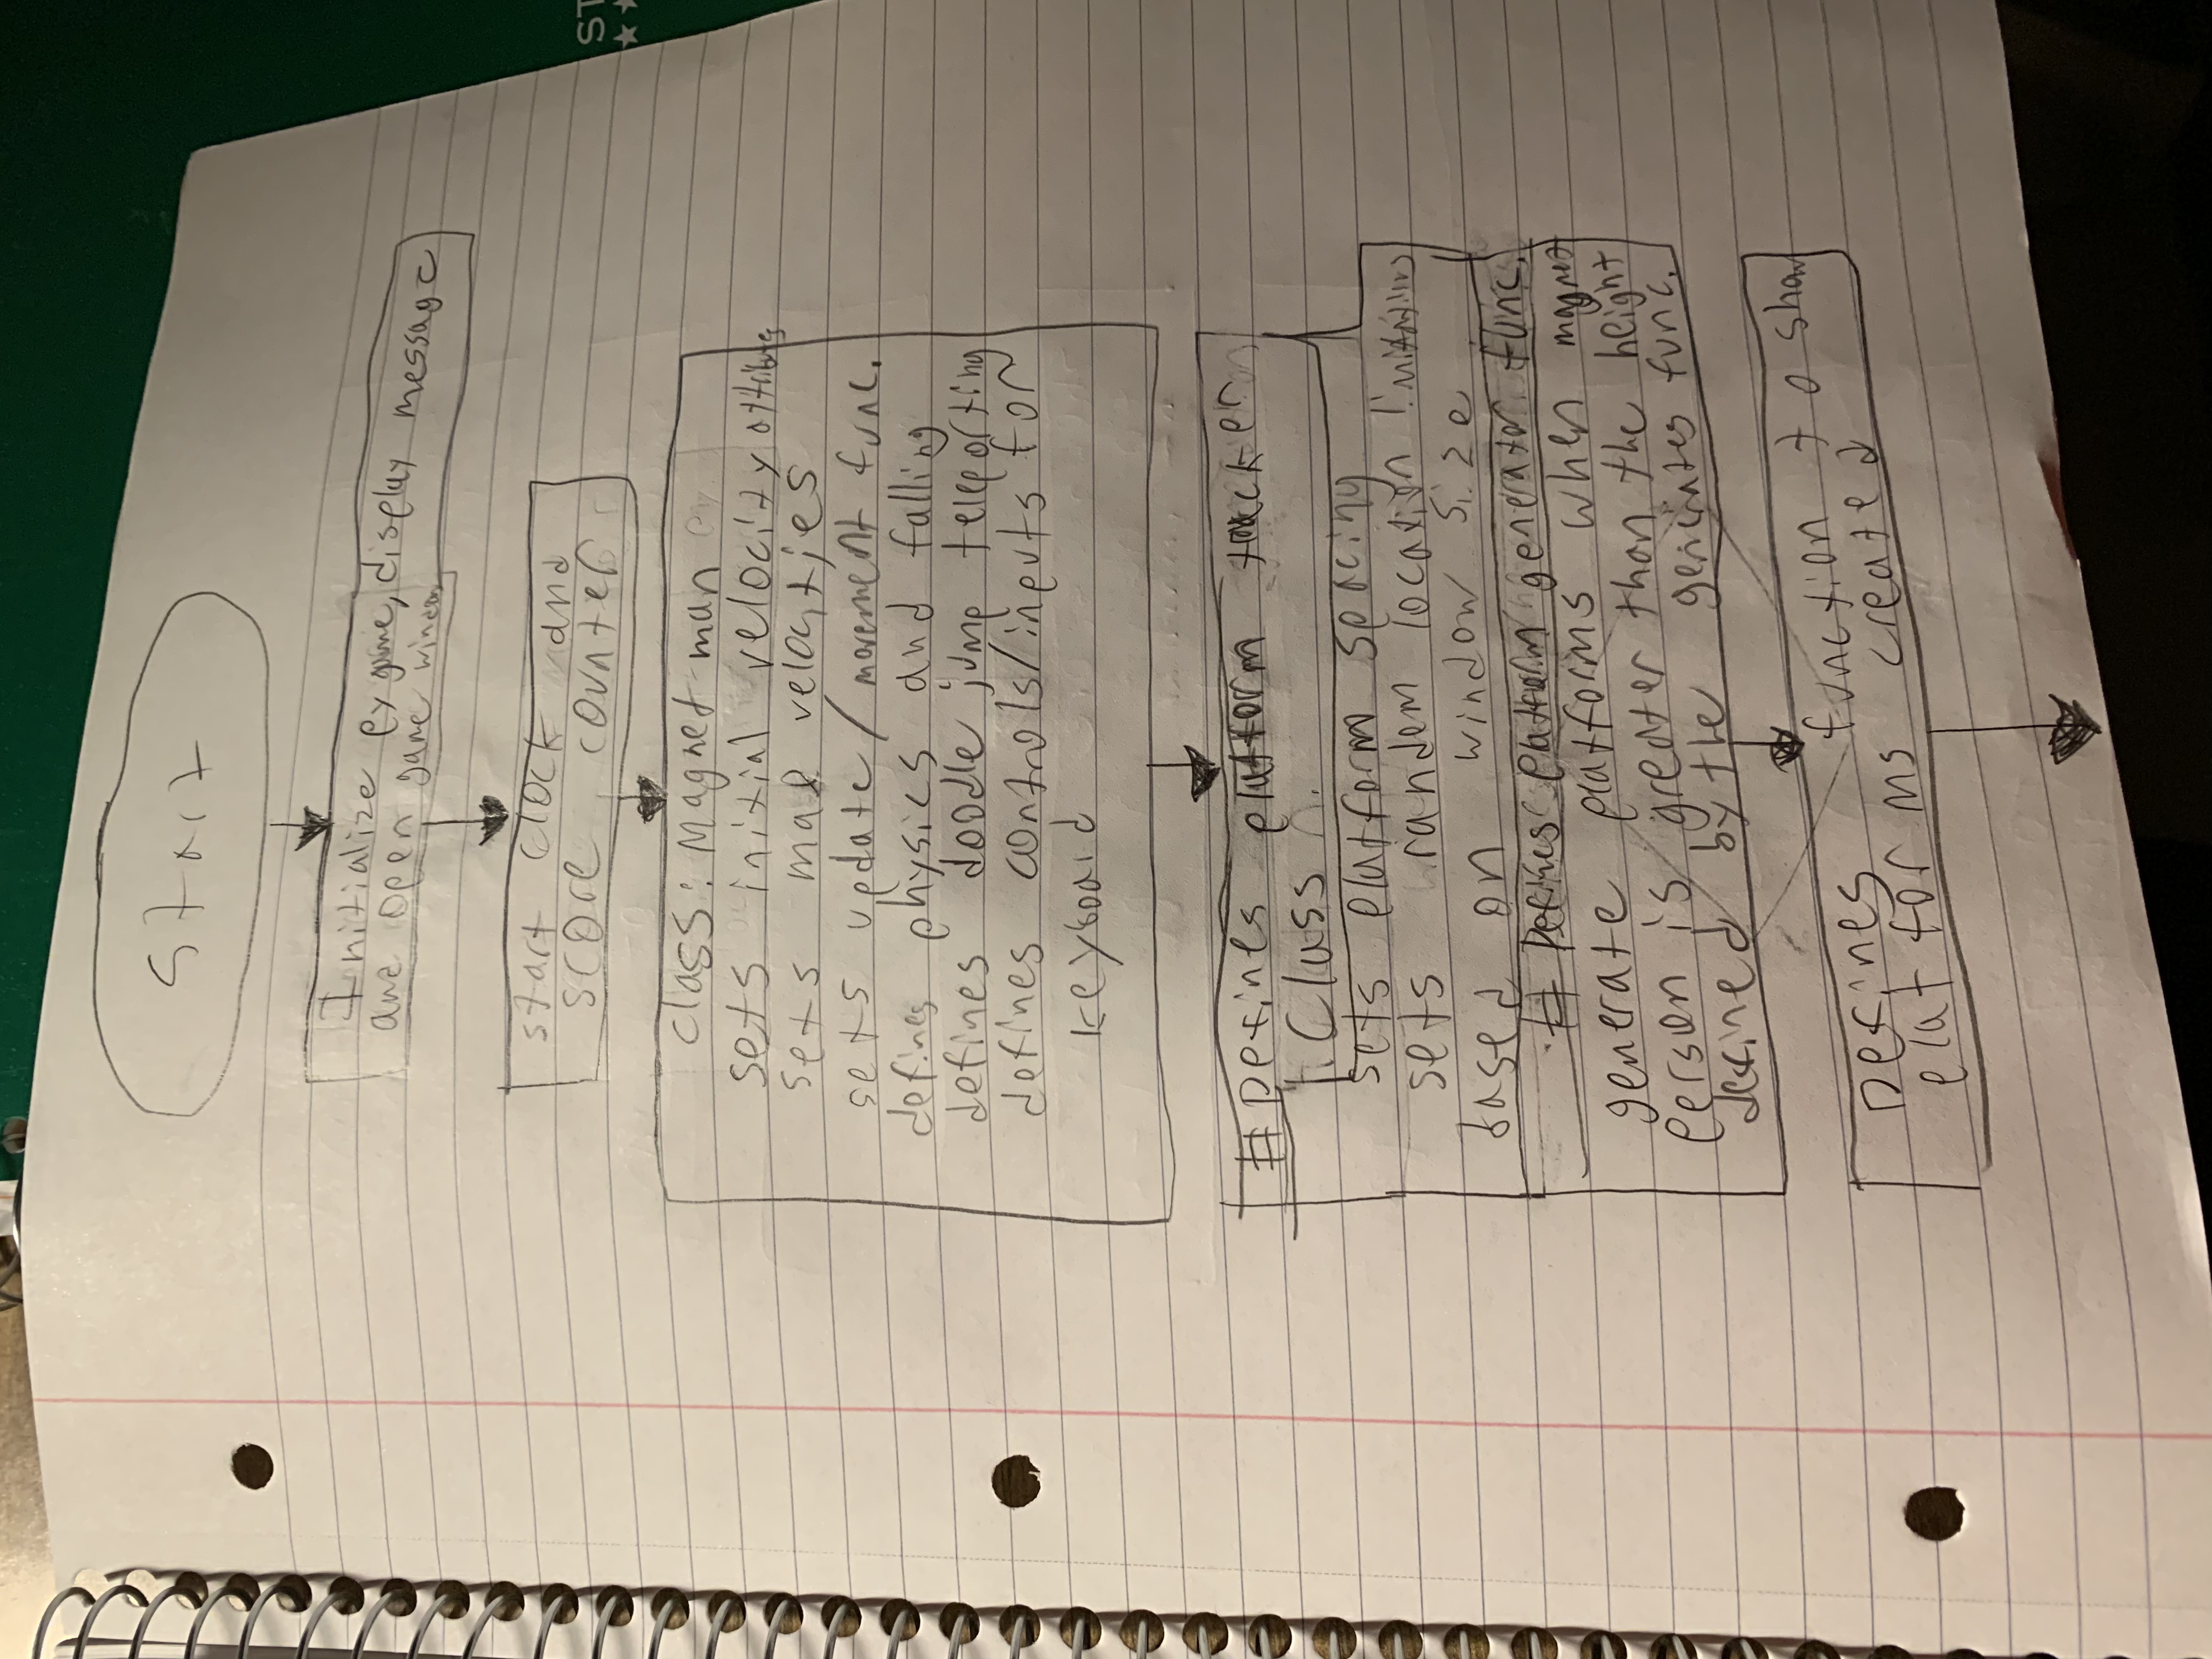 Start
Initialize pygame, display message
and open game window
start clock and
score counter
class: Magnet man
sets initial velocity attributes
sets max velocities
sets update/movement func.
defines physics and falling
defines doodle jump teleporting
defines controls/inputs for
keyboard
# Defines platform tracker
Class
sets platform spacing
sets random location limitations
based on window size
# Defines platform generator func.
generate platforms when magnet
person is greater than the height
defined by the generates func.
Defines function to show
platforms created
ST